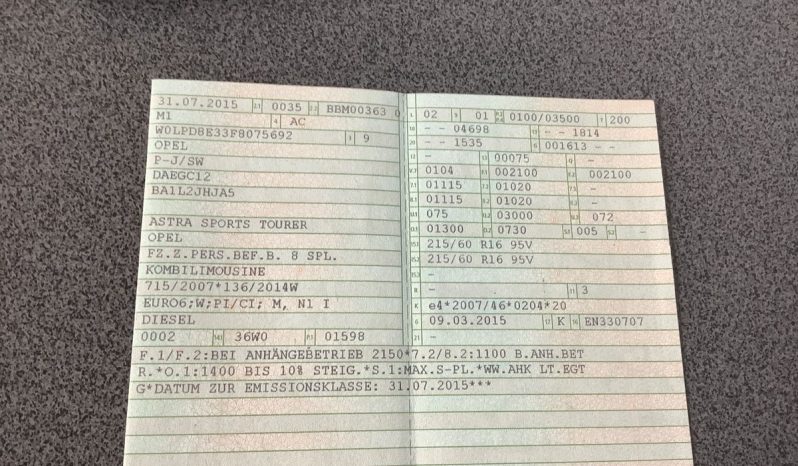 31.07.2015 2.1 0035 2.2 BBM00363 0
M1 4 AC
W0LPD8E33F8075692 3 9
OPEL
P-J/SW
DAEGC12
BA1L2JHJA5
ASTRA SPORTS TOURER
OPEL
FZ.Z.PERS.BEF.B. 8 SPL.
KOMBILIMOUSINE
715/2007*136/2014W
EURO6;W;PI/CI; M, N1 I
DIESEL
0002 14.1 36W0 P.1 01598
L 02 9 01 P.2 P.4 0100/03500 T 200
18 - - 04698 19 - - 1814
20 - - 1535 G 001613 - -
12 - 13 00075 Q -
V.7 0104 F.1 002100 F.2 002100
7.1 01115 7.2 01020 7.3 -
8.1 01115 8.2 01020 8.3 -
U.1 075 U.2 03000 U.3 072
O.1 01300 O.2 0730 S.1 005 S.2 -
15.1 215/60 R16 95V
15.2 215/60 R16 95V
15.3 -
R - 11 3
K e4*2007/46*0204*20
6 09.03.2015 17 K 16 EN330707
21 -
F.1/F.2:BEI ANHÄNGEBETRIEB 2150*7.2/8.2:1100 B.ANH.BET
R.*O.1:1400 BIS 10% STEIG.*S.1:MAX.S-PL.*WW.AHK LT.EGT
G*DATUM ZUR EMISSIONSKLASSE: 31.07.2015***